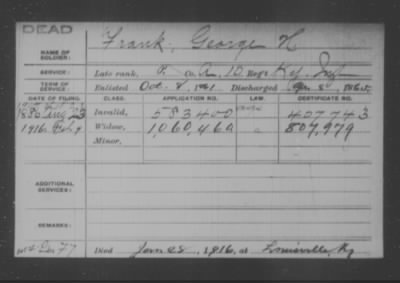 DEAD
NAME OF SOLDIER: Frank, George H
SERVICE: Late rank, P. Co. A, 10 Reg't Ky. Inf
TERM OF SERVICE: Enlisted Oct. 8, 1861 Discharged 186
DATE OF FILING. CLASS. APPLICATION NO. LAW. CERTIFICATE NO.
1886 Aug 23 Invalid, 583400 407743
1916 Feb. 9 Widow, 1,060,460 807,979
Minor,
ADDITIONAL SERVICES:
REMARKS:
Died Jan 28, 1916, at Louisville, Ky